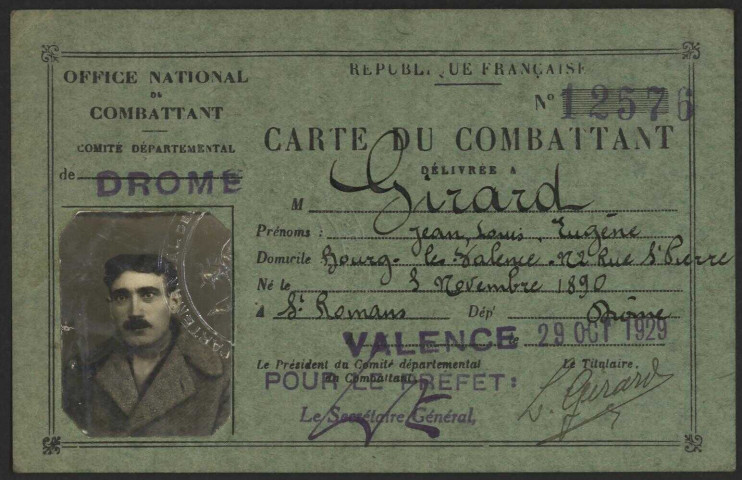 OFFICE NATIONAL
DU
COMBATTANT
COMITÉ DÉPARTEMENTAL
de DROME
RÉPUBLIQUE FRANÇAISE
N° 12576
CARTE DU COMBATTANT
DÉLIVRÉE A
M Girard
Prénoms : Jean, Louis, Eugène
Domicile Bourg-les-Valence. N2 Rue St Pierre
Né le 3 Novembre 1890
A St Romans Dépt Drôme
VALENCE le 29 OCT 1929
Le Président du Comité départemental
du Combattant,
Le Titulaire,
POUR LE PRÉFET:
Le Secrétaire Général,
L. Girard